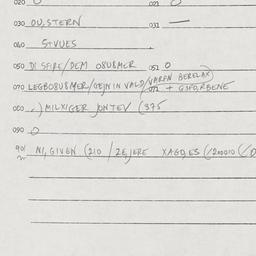 020 O 021 O
030 OU, STERN 031 —
040 STVUES
050 DI SFIRE/DEM OBUBMER 051 O
070 LEGBOBUBMER/GEJN IN VALD/VAREN BERELAX) 071 + G3FORBENE
080 MILXIGER JONTEV (375
090 O
901 NI, GIVEN (210 / ZEJERE XAGD, ES (/200010 (/0